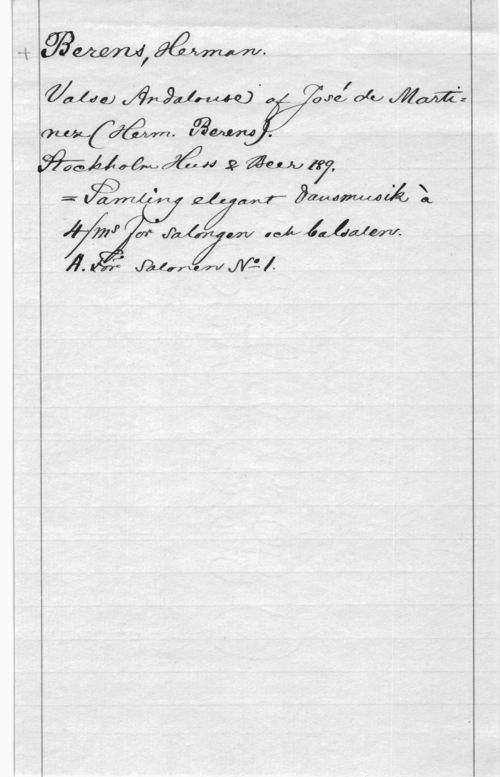 + Berens, Herman.
Valse Andalouse af José de Marti=
nez (Herm. Berens).
Stockholm Huss & Beer 189.
= Samling elegant dansmusik à
4/ms för salongen och balsalen.
A. För Salonen No 1.